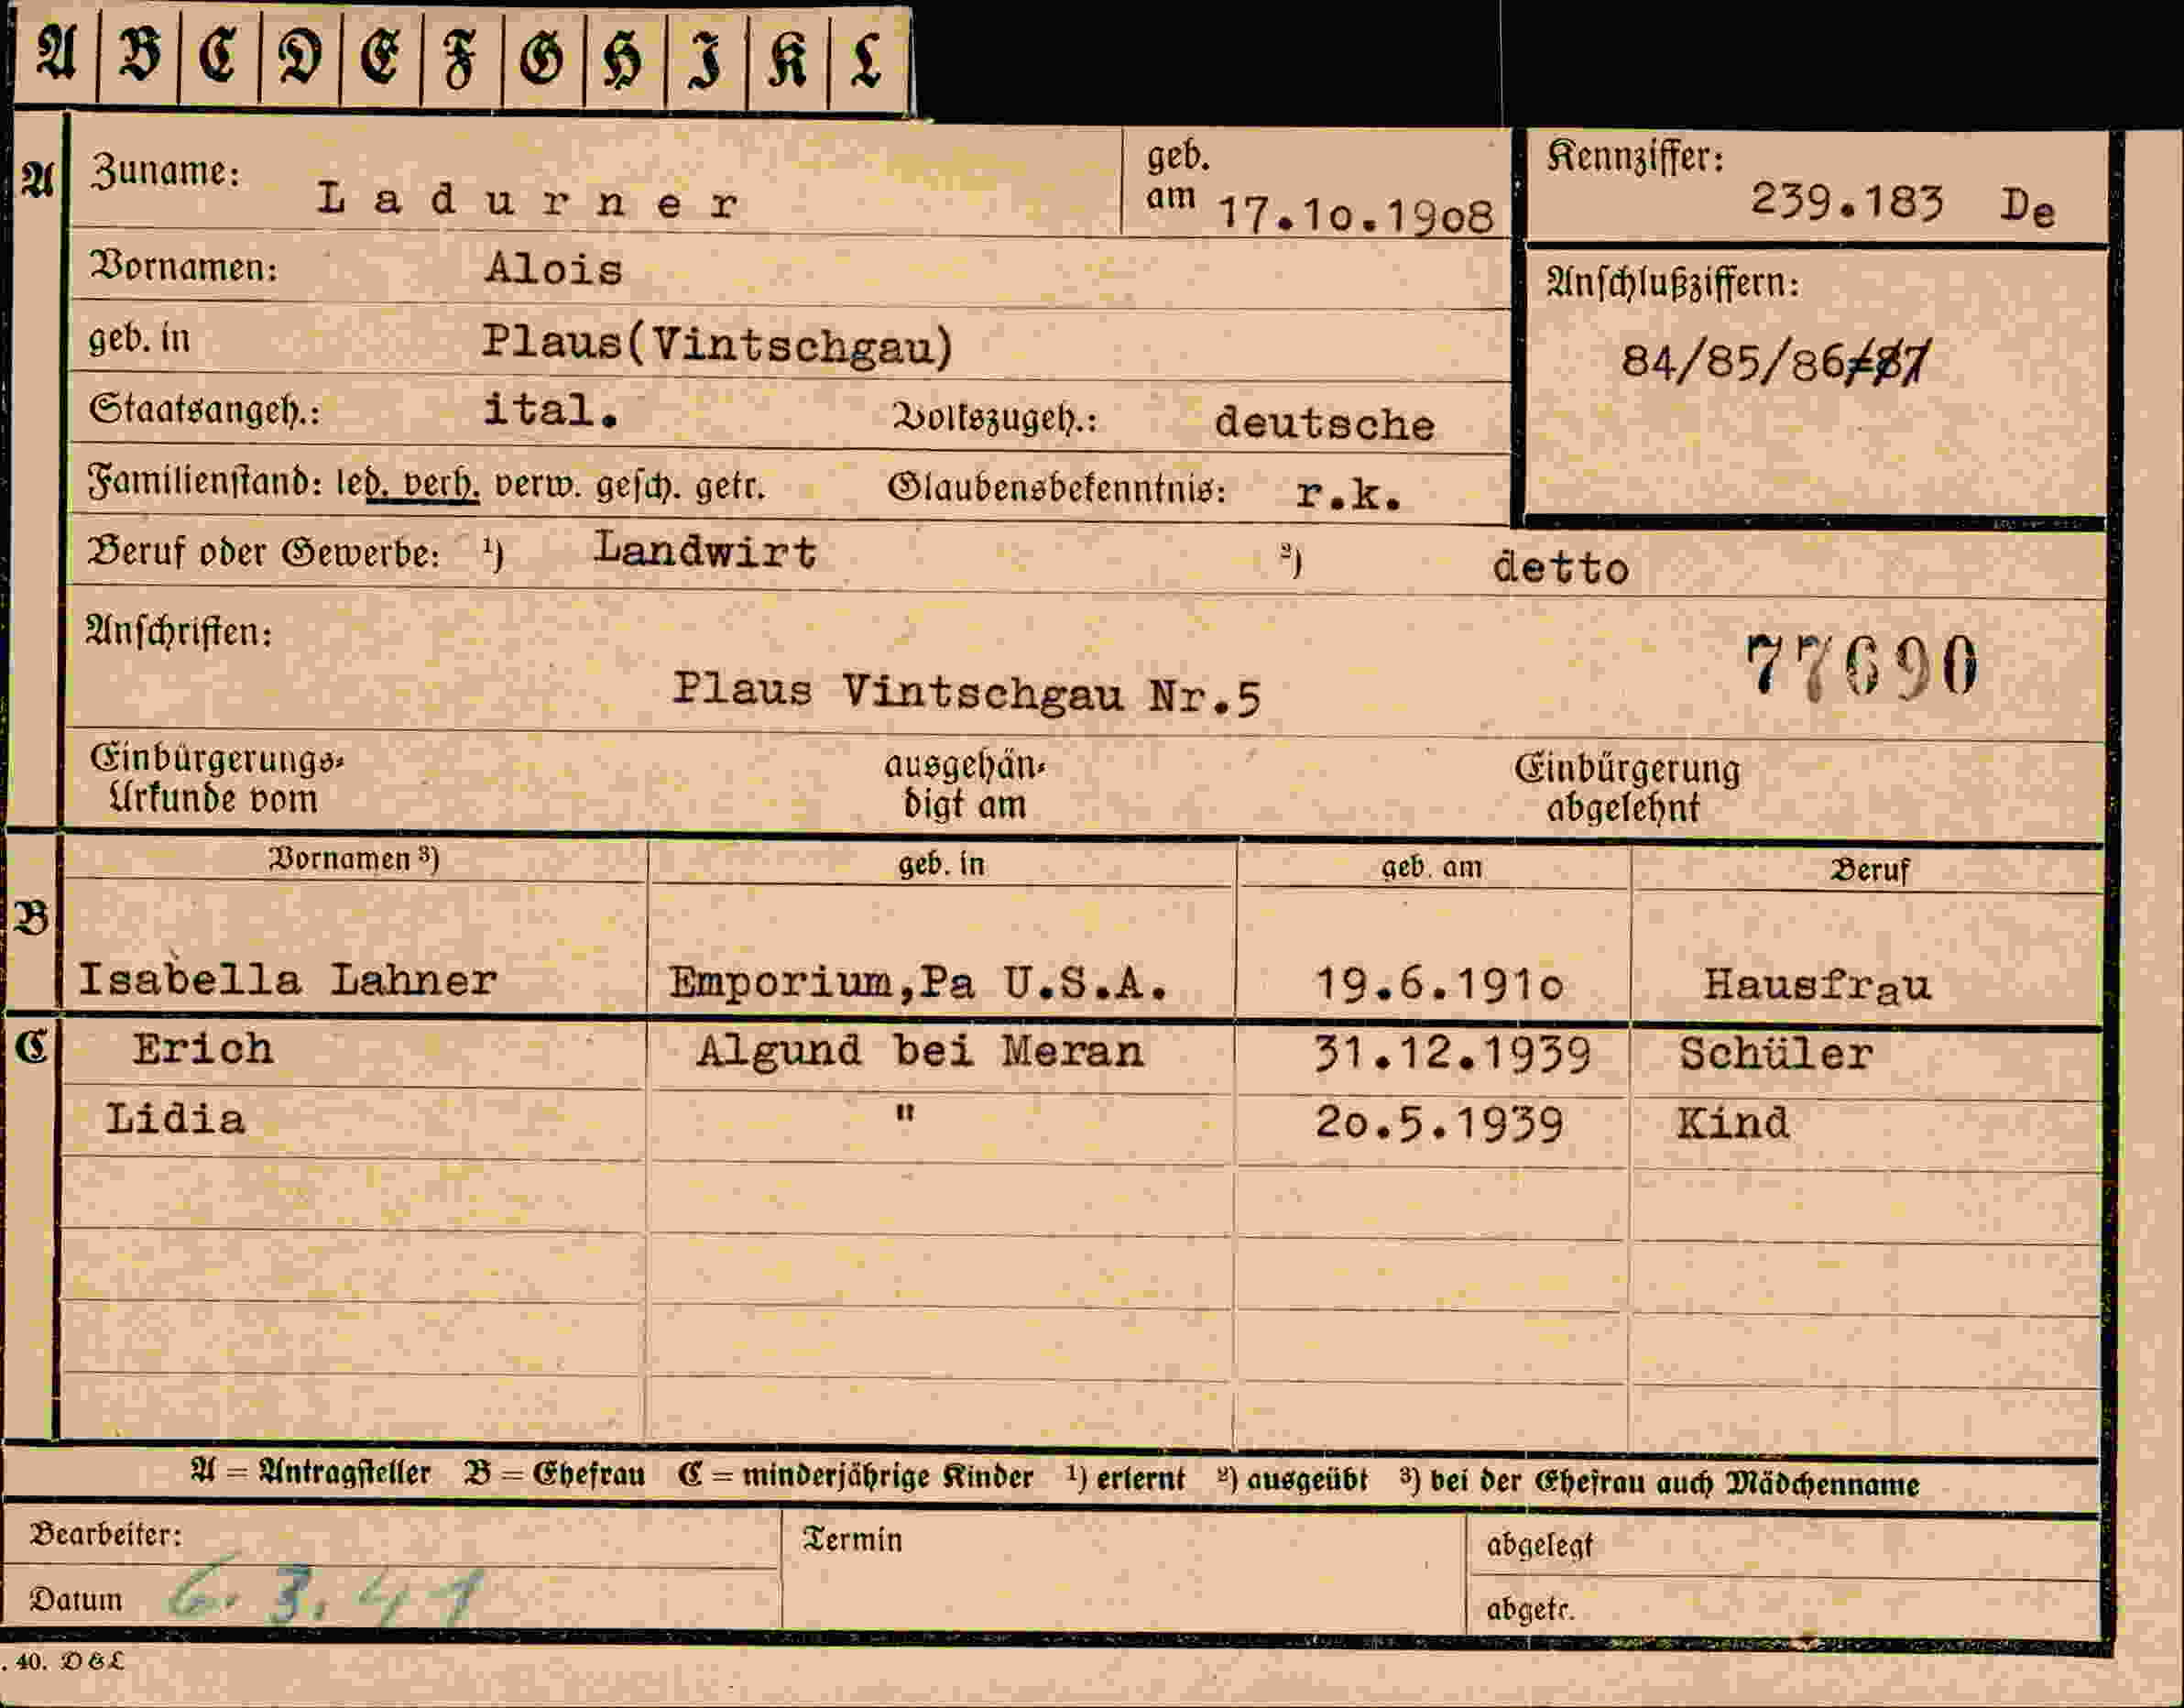 A B C D E F G H I K L
A Zuname: Ladurner geb. am 17.10.1908 Kennziffer: 239.183 De
Vornamen: Alois Anschlußziffern:
geb. in Plaus(Vintschgau) 84/85/86/87
Staatsangeh.: ital. Volkszugeh.: deutsche
Familienstand: led. verh. verw. gesch. getr. Glaubensbekenntnis: r.k.
Beruf oder Gewerbe: ¹) Landwirt ²) detto
Anschriften: 77690
Plaus Vintschgau Nr.5
Einbürgerungs- ausgehän- Einbürgerung
Urkunde vom digt am abgelehnt
Vornamen ³) geb. in geb. am Beruf
B
Isabella Lahner Emporium,Pa U.S.A. 19.6.1910 Hausfrau
C Erich Algund bei Meran 31.12.1939 Schüler
Lidia " 20.5.1939 Kind
A = Antragsteller B = Ehefrau C = minderjährige Kinder ¹) erlernt ²) ausgeübt ³) bei der Ehefrau auch Mädchenname
Bearbeiter: Termin abgelegt
Datum 6.3.41 abgetr.
. 40. D&L